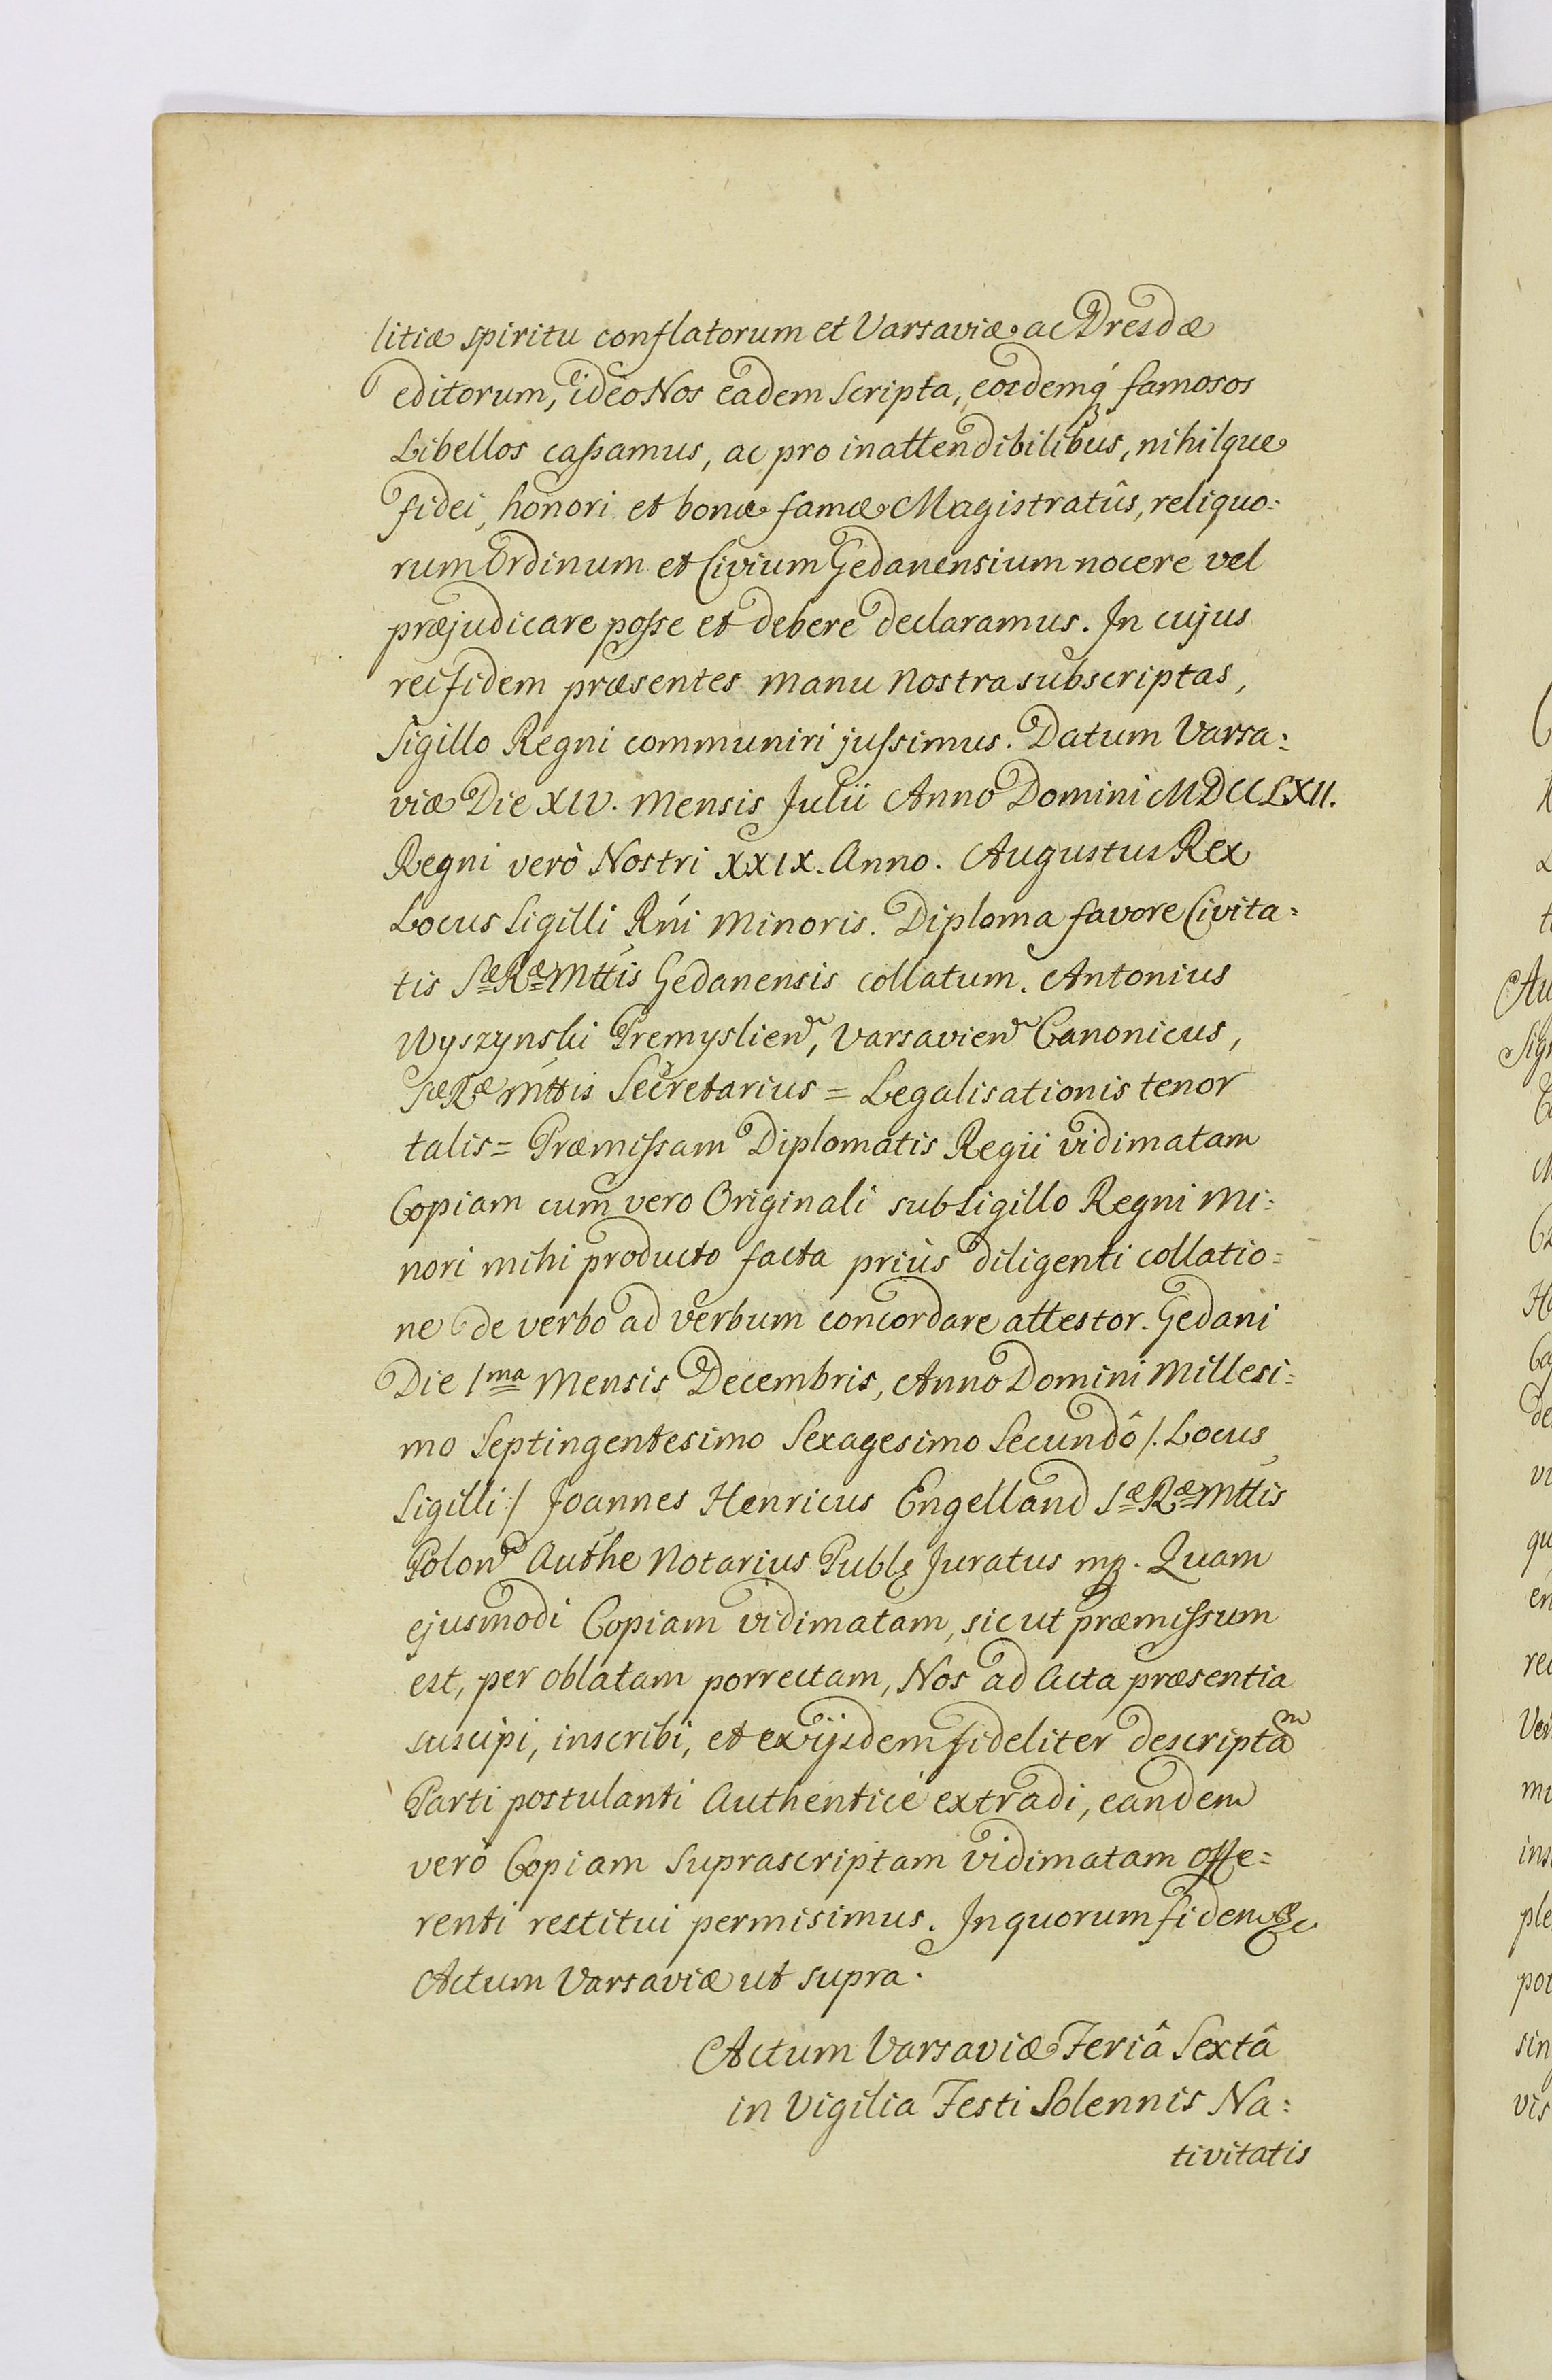 litiæ spiritu conflatorum et Varsaviæ ac Dresdæ
editorum, ideo Nos eadem Scripta, eosdemq́ famosos
Libellos cassamus, ac pro inattendibilibus, nihilque
fidei, honori et bonæ famæ Magistratûs, reliquo=
rum Ordinum et Civium Gedanensium nocere vel
præjudicare posse et debere declaramus. In cujus
rei fidem præsentes manu Nostra subscriptas,
Sigillo Regni communiri jussimus. Datum Varsa=
viæ Die XIV. Mensis Julii Anno Domini MDCCLXII.
Regni verò Nostri XXIX. Anno. Augustus Rex
Locus Sigilli Rńi Minoris. Diploma favore Civita=
tis Sæ Ræ Mttis Gedanensis collatum. Antonius
Wyszynski Premyslien, Varsavien Canonicus,
Sæ Ræ Mttis Secretarius = Legalisationis tenor
talis = Præmissam Diplomatis Regii vidimatam
Copiam cum vero Originali sub Sigillo Regni Mi=
nori mihi producto facta priùs diligenti collatio=
ne de verbo ad verbum concordare attestor. Gedani
Die 1ma Mensis Decembris, Anno Domini Millesi=
mo Septingentesimo Sexagesimo Secundô /. Locus
Sigilli: / Joannes Henricus Engelland Sæ Ræ Mttis
Polon Authe Notarius Publ Juratus mp. Quam
ejusmodi Copiam vidimatam, sicut præmissum
est, per oblatam porrectam, Nos ad Acta præsentia
suscipi, inscribi, et ex ijsdem fideliter descriptam
Parti postulanti Authenticè extradi, eandem
verò Copiam Suprascriptam vidimatam offe=
renti restitui permisimus. In quorum fidem &c
Actum Varsaviæ ut supra.
Actum Varsaviæ Feriâ Sextâ
in Vigilia Festi Solennis Na=
tivitatis